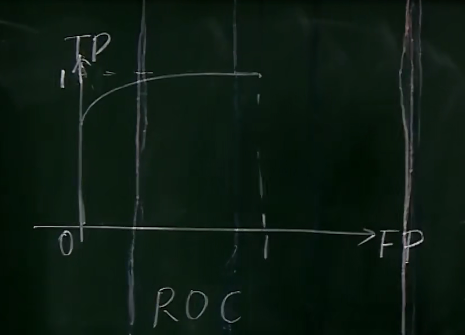 TP
1
0
1
FP
ROC